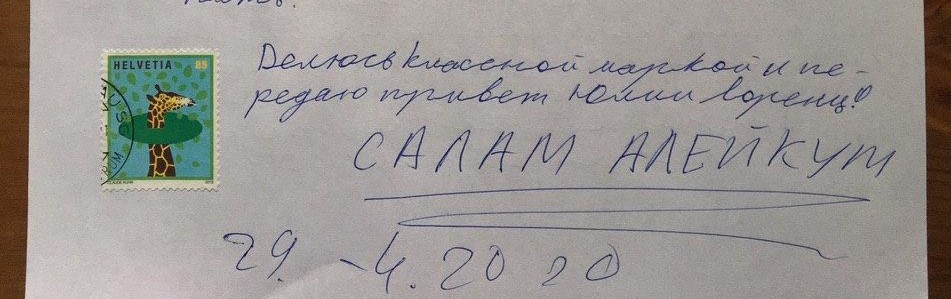 HELVETIA 85
Делюсь классной маркой и пе-
редаю привет Юлии Лоренц!
САЛАМ АЛЕЙКУМ
29. -4. 2020